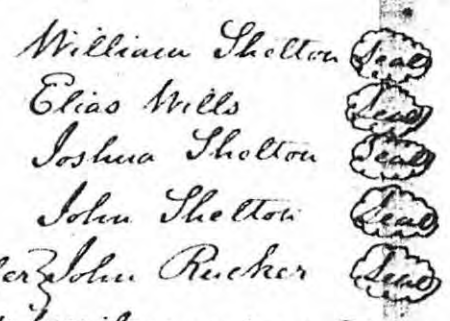 William Shelton Seal
Elias Wills Seal
Joshua Shelton Seal
John Shelton Seal
John Rucker Seal